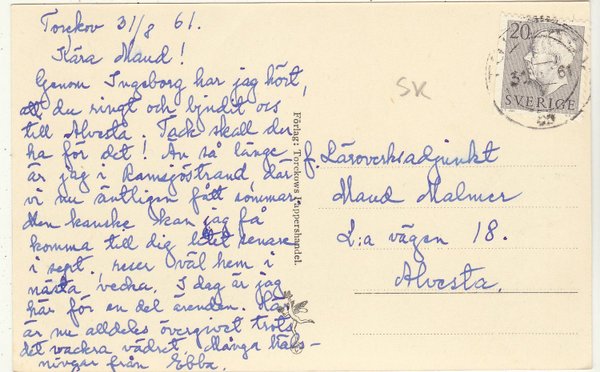 Torekov 31/8 61.
Kära Maud!
Genom Ingeborg har jag hört,
att du ringt och bjudit oss
till Alvesta. Tack skall du
ha för det! Än så länge
är jag i Ramsjöstrand där
vi nu äntligen fått sommar.
Men kanske kan jag få
komma till dig litet senare
i sept. reser väl hem i
nästa vecka. I dag är jag
här för en del ärenden. Här
är nu alldeles övergivet trots
det vackra vädret. Många häls-
ningar från Ebba.
Förlag: Torekows Pappershandel.
SK
20
SVERIGE
31 61
f. Läroverksadjunkt
Maud Malmer
L:a vägen 18.
Alvesta.